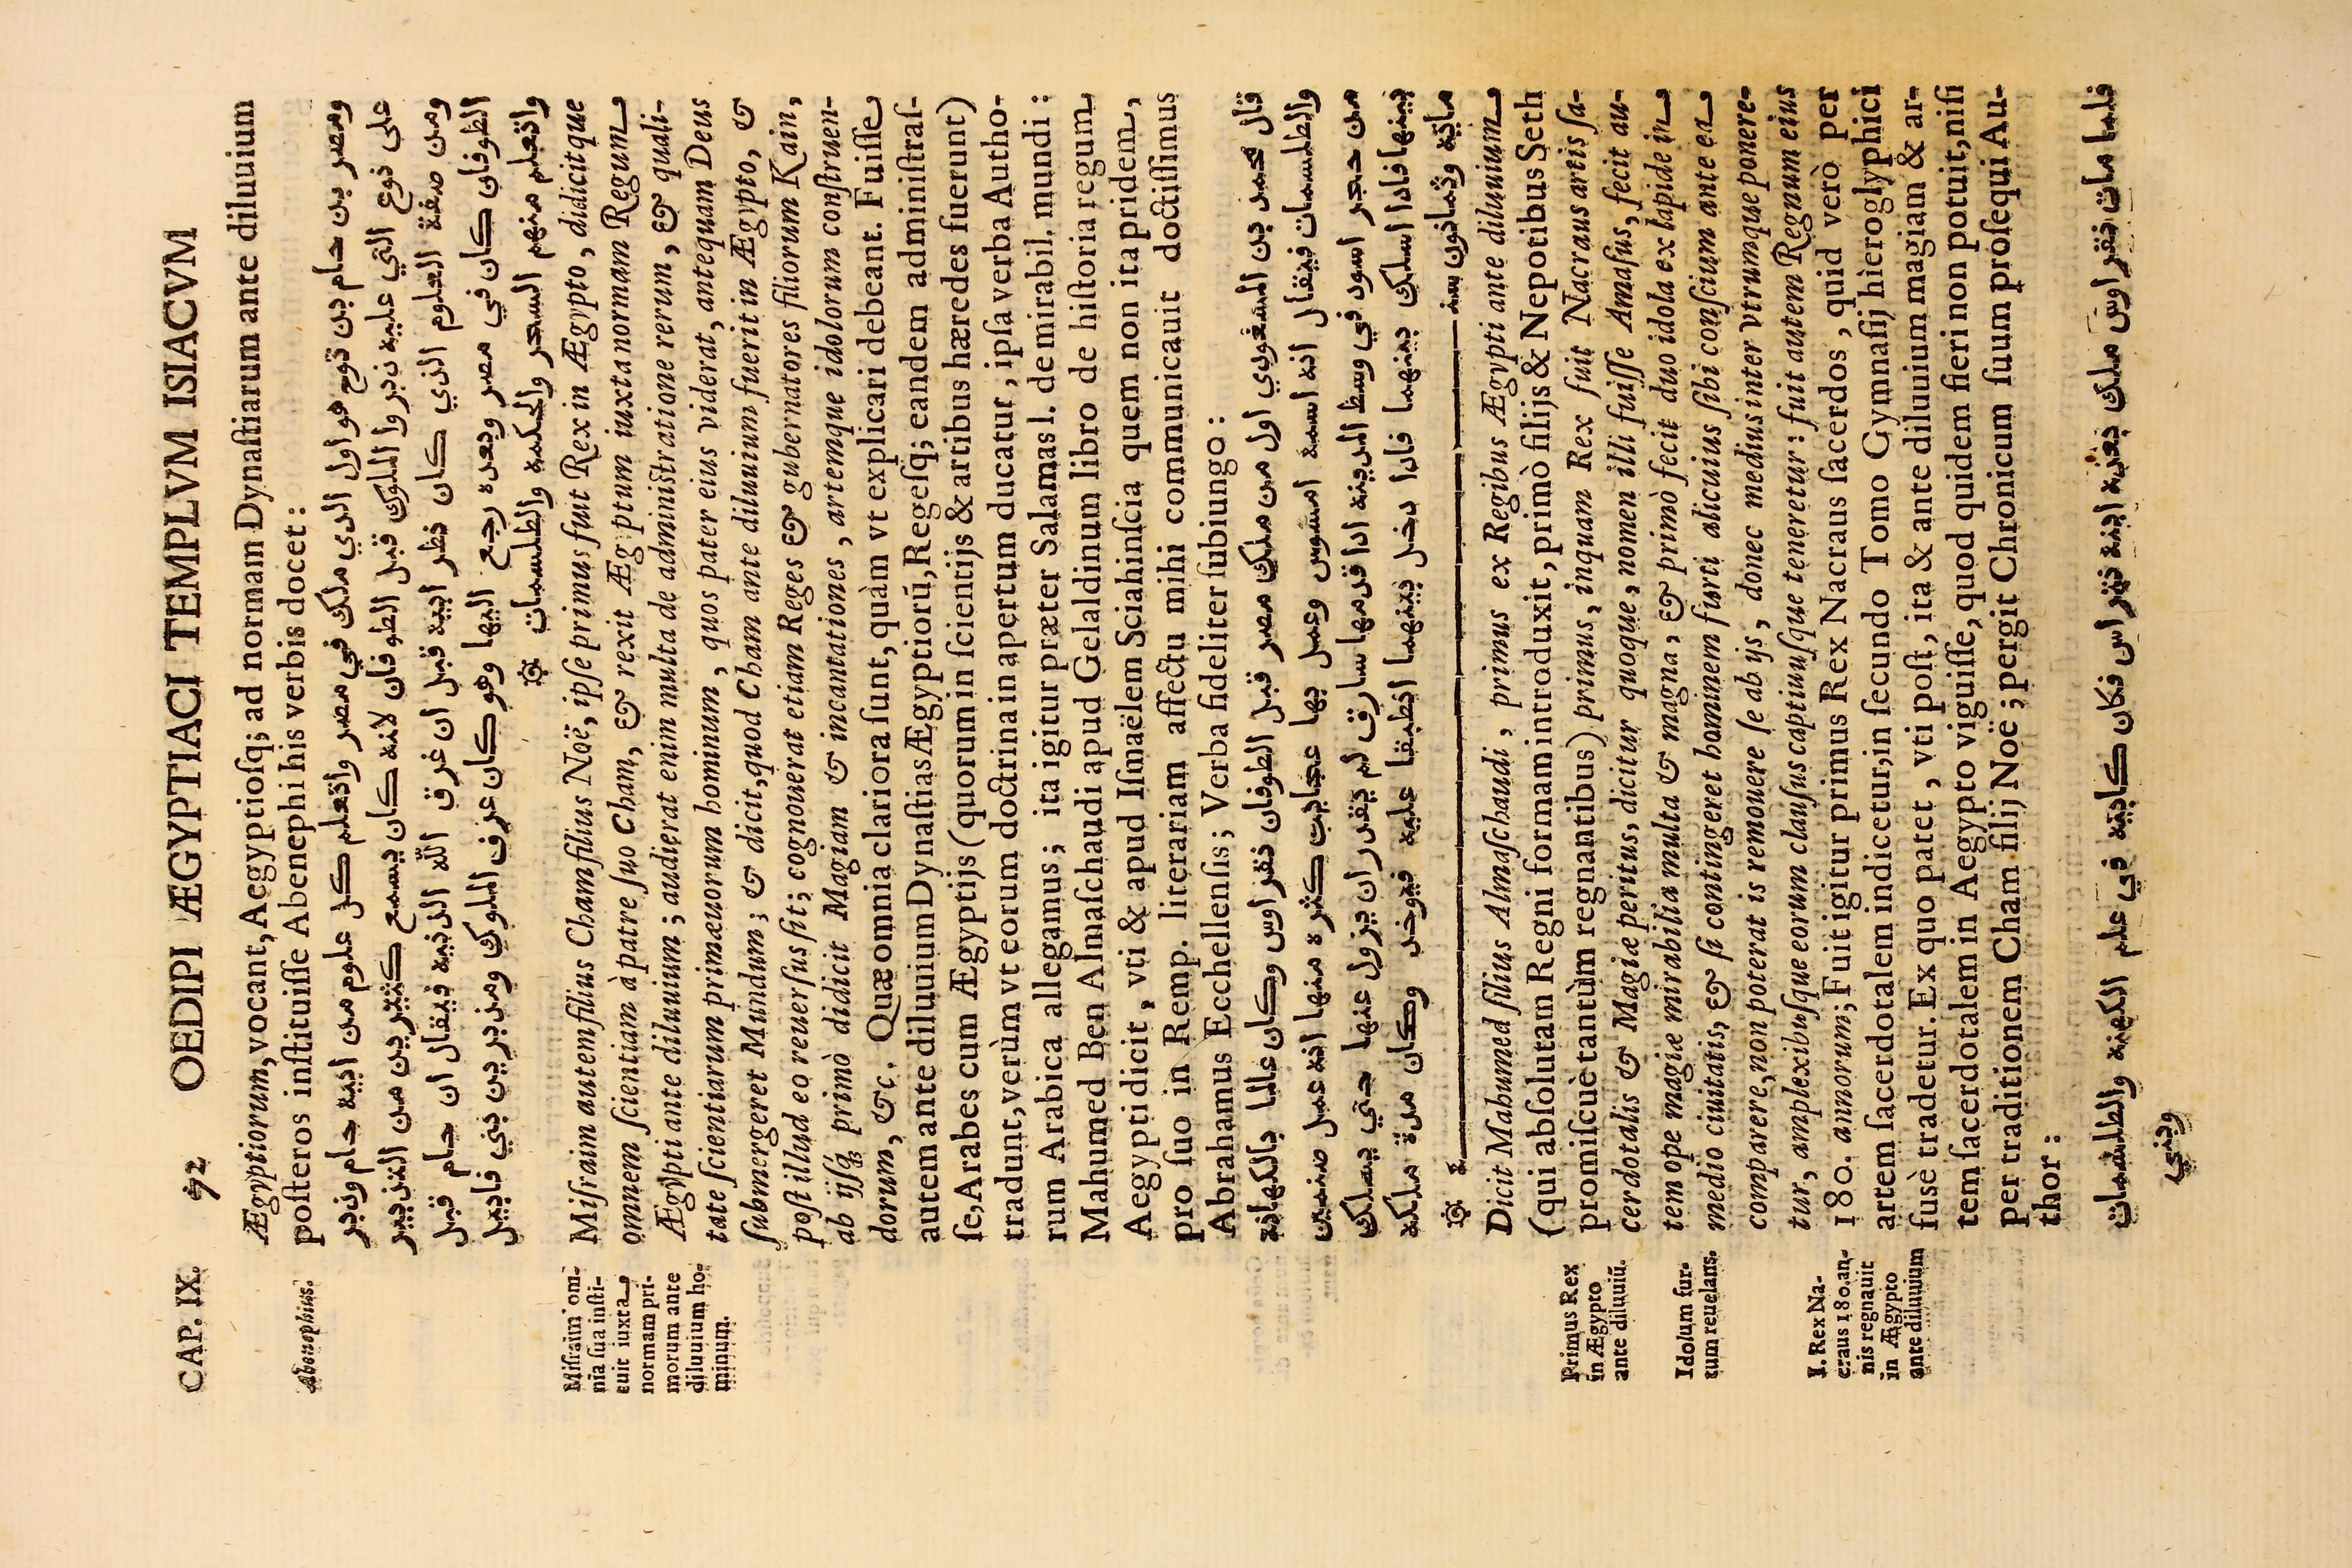 CAP. IX. 72 OEDIPI ÆGYPTIACI TEMPLVM ISIACVM
Ægyptiorum, vocant, Aegyptioſq; ad normam Dynaſtiarum ante diluuium
poſteros inſtituiſſe Abenephi his verbis docet:
Abenephius.
ومصر بن حام بن نوح هو اول الدي ملك في مصر واتعلم كل علوم من ابيه حام ودبر
على نوع التي عليه دبروا الملوك قبل الطوفان لانه كان يسمع كثيرين من التدبير
ومن صفة العلوم الذي كان نظر ابيه قبل ان غرق الله الدنيه فيقال ان حام قبل
الطوفان كان في مصر وبعده رجع اليها وهو كان عرف الملوك ومدبرين بني قابيل
واتعلم منهم السحر والحكمة والطلسمات
Miſraim autem filius Cham filius Noë, ipſe primus fuit Rex in Ægypto, didicitque
omnem ſcientiam à patre ſuo Cham, & rexit Ægyptum iuxta normam Regum
Ægypti ante diluuium; audierat enim multa de adminiſtratione rerum, & quali-
tate ſcientiarum primæuorum hominum, quos pater eius viderat, antequam Deus
ſubmergeret Mundum; & dicit, quod Cham ante diluuium fuerit in Ægypto, &
poſt illud eo reuerſus ſit; cognouerat etiam Reges & gubernatores filiorum Kain,
ab ijſq; primò didicit Magiam & incantationes, artemque idolorum conſtruen-
dorum, &c. Quæ omnia clariora ſunt, quàm vt explicari debeant. Fuiſſe
Miſraim om-
nia ſua inſti-
tuit iuxta
normam pri-
morum ante
diluuium ho-
minum.
autem ante diluuium Dynaſtias Ægyptiorũ, Regeſq; eandem adminiſtraſ-
ſe, Arabes cum Ægyptijs (quorum in ſcientijs & artibus hæredes fuerunt)
tradunt, verùm vt eorum doctrina in apertum ducatur, ipſa verba Autho-
rum Arabica allegamus; ita igitur præter Salamas l. de mirabil. mundi:
Mahumed Ben Almaſchaudi apud Gelaldinum libro de hiſtoria regum
Aegypti dicit, vti & apud Iſmaëlem Sciahinſcia quem non ita pridem,
pro ſuo in Remp. literariam affectu mihi communicauit doctiſſimus
Abrahamus Ecchellenſis; Verba fideliter ſubiungo:
قال محمد بن المسعودي اول من ملك مصر قبل الطوفان نقراوس وكان عالما بالكهانة
والطلسمات فيقال انه اسمه امسوس وعمل بها عجايب كثره منها انه عمل صنمين
من حجر اسود في وسط المدينة ادا قدمها سارق لم يقدر ان يزول عنها حتي يسلك
بينها فادا اسلك بينهما فادا دخل بينهما اطبقا عليه فيوخد وكان مدة ملكه
ماية وثمانون سنه
Dicit Mahumed filius Almaſchaudi, primus ex Regibus Ægypti ante diluuium
(qui abſolutam Regni formam introduxit, primò filijs & Nepotibus Seth
promiſcuè tantùm regnantibus) primus, inquam Rex fuit Nacraus artis ſa-
cerdotalis & Magiæ peritus, dicitur quoque, nomen illi fuiſſe Amaſus, fecit au-
tem ope magiæ mirabilia multa & magna, & primò fecit duo idola ex lapide in
medio ciuitatis, & ſi contingeret hominem furti alicuius ſibi conſcium ante ea
comparere, non poterat is remouere ſe ab ijs, donec medius inter vtrumque ponere-
tur, amplexibuſque eorum clauſus captiuuſque teneretur: fuit autem Regnum eius
180. annorum; Fuit igitur primus Rex Nacraus ſacerdos, quid verò per
artem ſacerdotalem indicetur, in ſecundo Tomo Gymnaſij hieroglyphici
fusè tradetur. Ex quo patet, vti poſt, ita & ante diluuium magiam & ar-
tem ſacerdotalem in Aegypto viguiſſe, quod quidem fieri non potuit, niſi
per traditionem Cham filij Noë; pergit Chronicum ſuum proſequi Au-
thor:
Primus Rex
in Ægypto
ante diluuiũ.
Idolum fur-
tum reuelans.
I. Rex Na-
craus 180. an-
nis regnauit
in Ægypto
ante diluuium
فلما مات نقراوس ملك بعده ابنه نتراس فكان كابيه في علم الكهنه والطلسمات
وبني